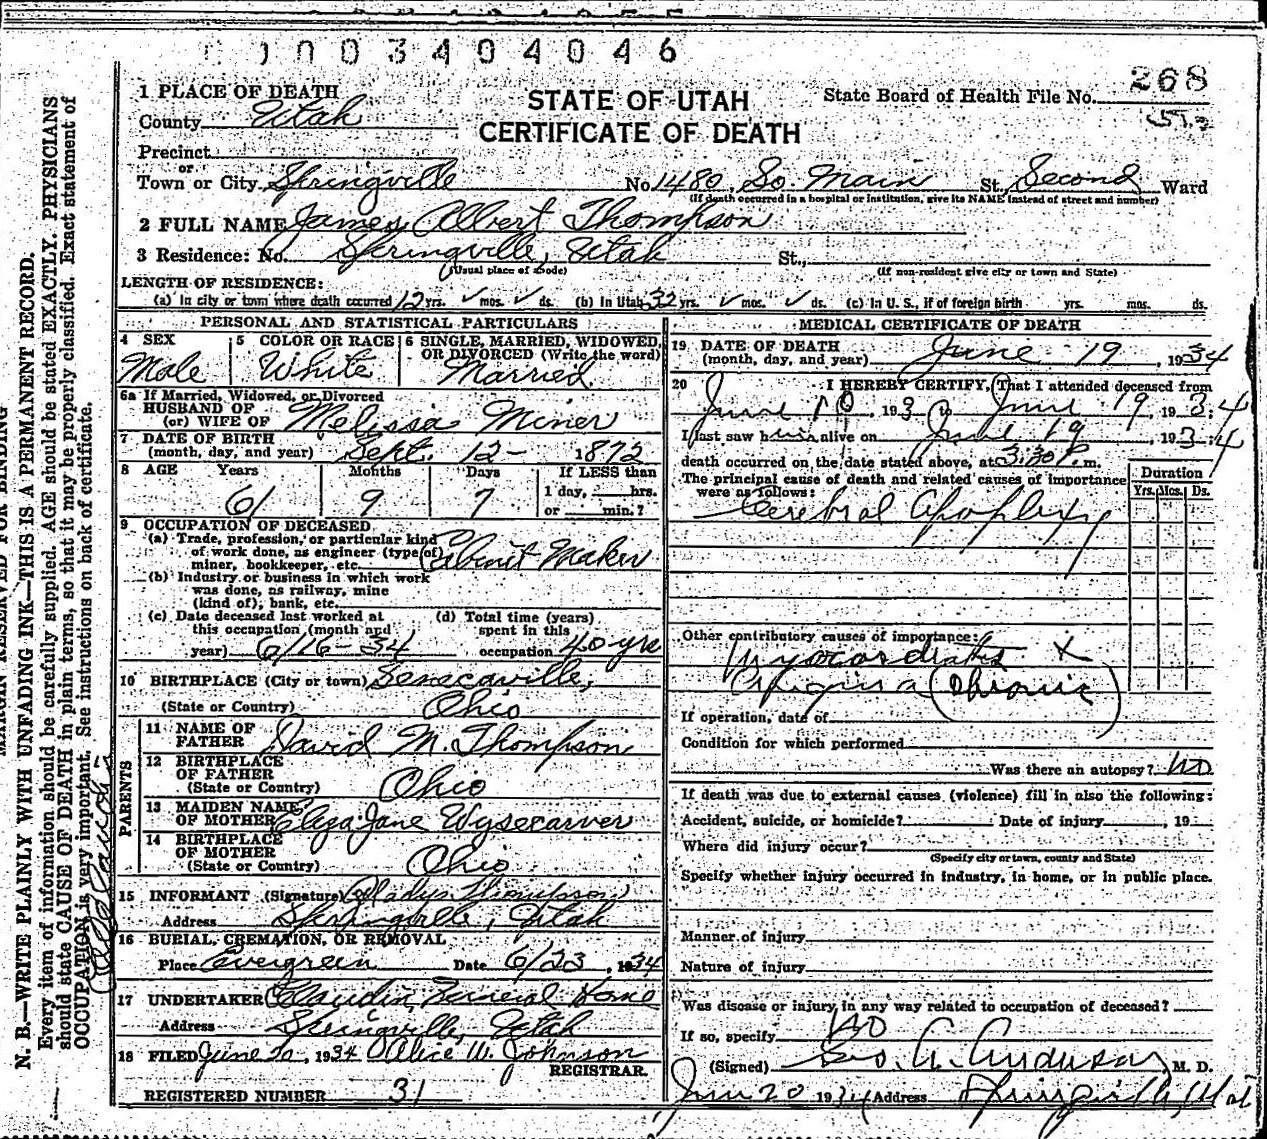 0003404046
1 PLACE OF DEATH
County Utah
STATE OF UTAH
CERTIFICATE OF DEATH
State Board of Health File No. 268
Precinct
or
Town or City Springville No. 1480 So. Main St., Second Ward
(If death occurred in a hospital or institution, give its NAME instead of street and number)
2 FULL NAME James Albert Thompson
3 Residence: No. Springville, Utah St.,
(Usual place of abode) (If non-resident give city or town and State)
LENGTH OF RESIDENCE:
(a) In city or town where death occurred 12 yrs. ✓ mos. ✓ ds. (b) In Utah 32 yrs. ✓ mos. ✓ ds. (c) In U. S., if of foreign birth yrs. mos. ds.
PERSONAL AND STATISTICAL PARTICULARS
4 SEX
Male
5 COLOR OR RACE
White
6 SINGLE, MARRIED, WIDOWED,
OR DIVORCED (Write the word)
Married
6a If Married, Widowed, or Divorced
HUSBAND OF
(or) WIFE OF Melissa Miner
7 DATE OF BIRTH
(month, day, and year) Sept. 12 - 1872
8 AGE Years Months Days If LESS than
61 9 7 1 day, hrs.
or min.?
9 OCCUPATION OF DECEASED
(a) Trade, profession, or particular kind
of work done, as engineer (type of)
miner, bookkeeper, etc. Cabinet Maker
(b) Industry or business in which work
was done, as railway, mine
(kind of); bank, etc.
(c) Date deceased last worked at
this occupation (month and
year) 6/16-34
(d) Total time (years)
spent in this
occupation 40 yrs
10 BIRTHPLACE (City or town) Senecaville,
(State or Country) Ohio
PARENTS
11 NAME OF
FATHER David M. Thompson
12 BIRTHPLACE
OF FATHER
(State or Country) Ohio
13 MAIDEN NAME
OF MOTHER Eliza Jane Wysecarver
14 BIRTHPLACE
OF MOTHER
(State or Country) Ohio
15 INFORMANT (Signature) Gladys Thompson
Address Springville, Utah
16 BURIAL, CREMATION, OR REMOVAL
Place Evergreen Date 6/23, 1934
17 UNDERTAKER Claudin Funeral Home
Address Springville, Utah
18 FILED June 20, 1934 Alice M. Johnson
REGISTRAR.
REGISTERED NUMBER 31
MEDICAL CERTIFICATE OF DEATH
19 DATE OF DEATH
(month, day, and year) June 19, 1934
20 I HEREBY CERTIFY, That I attended deceased from
June 10, 193 to June 19, 1934
I last saw him alive on June 19 1934
death occurred on the date stated above, at 3:30 P. m.
The principal cause of death and related causes of importance
were as follows:
Duration
Yrs. Mos. Ds.
Cerebral Apoplexy
Other contributory causes of importance:
Myocarditis +
Angina (Chronic)
If operation, date of
Condition for which performed
Was there an autopsy? no
If death was due to external causes (violence) fill in also the following:
Accident, suicide, or homicide? Date of injury , 19
Where did injury occur?
(Specify city or town, county and State)
Specify whether injury occurred in industry, in home, or in public place.
Manner of injury
Nature of injury
Was disease or injury in any way related to occupation of deceased?
If so, specify no
(Signed) Geo. A. Anderson M. D.
Jun 20 1934 Address Springville, Utah
MARGIN RESERVED FOR BINDING
N. B.—WRITE PLAINLY WITH UNFADING INK—THIS IS A PERMANENT RECORD.
Every item of information should be carefully supplied. AGE should be stated EXACTLY. PHYSICIANS
should state CAUSE OF DEATH in plain terms, so that it may be properly classified. Exact statement of
OCCUPATION is very important. See instructions on back of certificate.